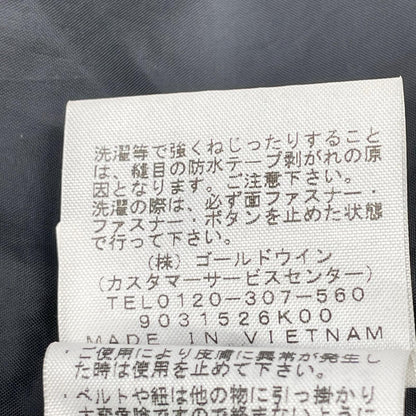 洗濯等で強くねじったりすること
は、縫目の防水テープ剥がれの原
因となります。ご注意下さい。
洗濯の際は、必ず面ファスナー・
ファスナー・ボタンを止めた状態
で行って下さい。
(株) ゴールドウイン
(カスタマーサービスセンター)
TEL0120-307-560
9031526K00
MADE IN VIETNAM
・ご使用により皮膚に異常が発生し
た時は使用を止めて下さい。
・ベルトや紐は他の物に引っ掛かり